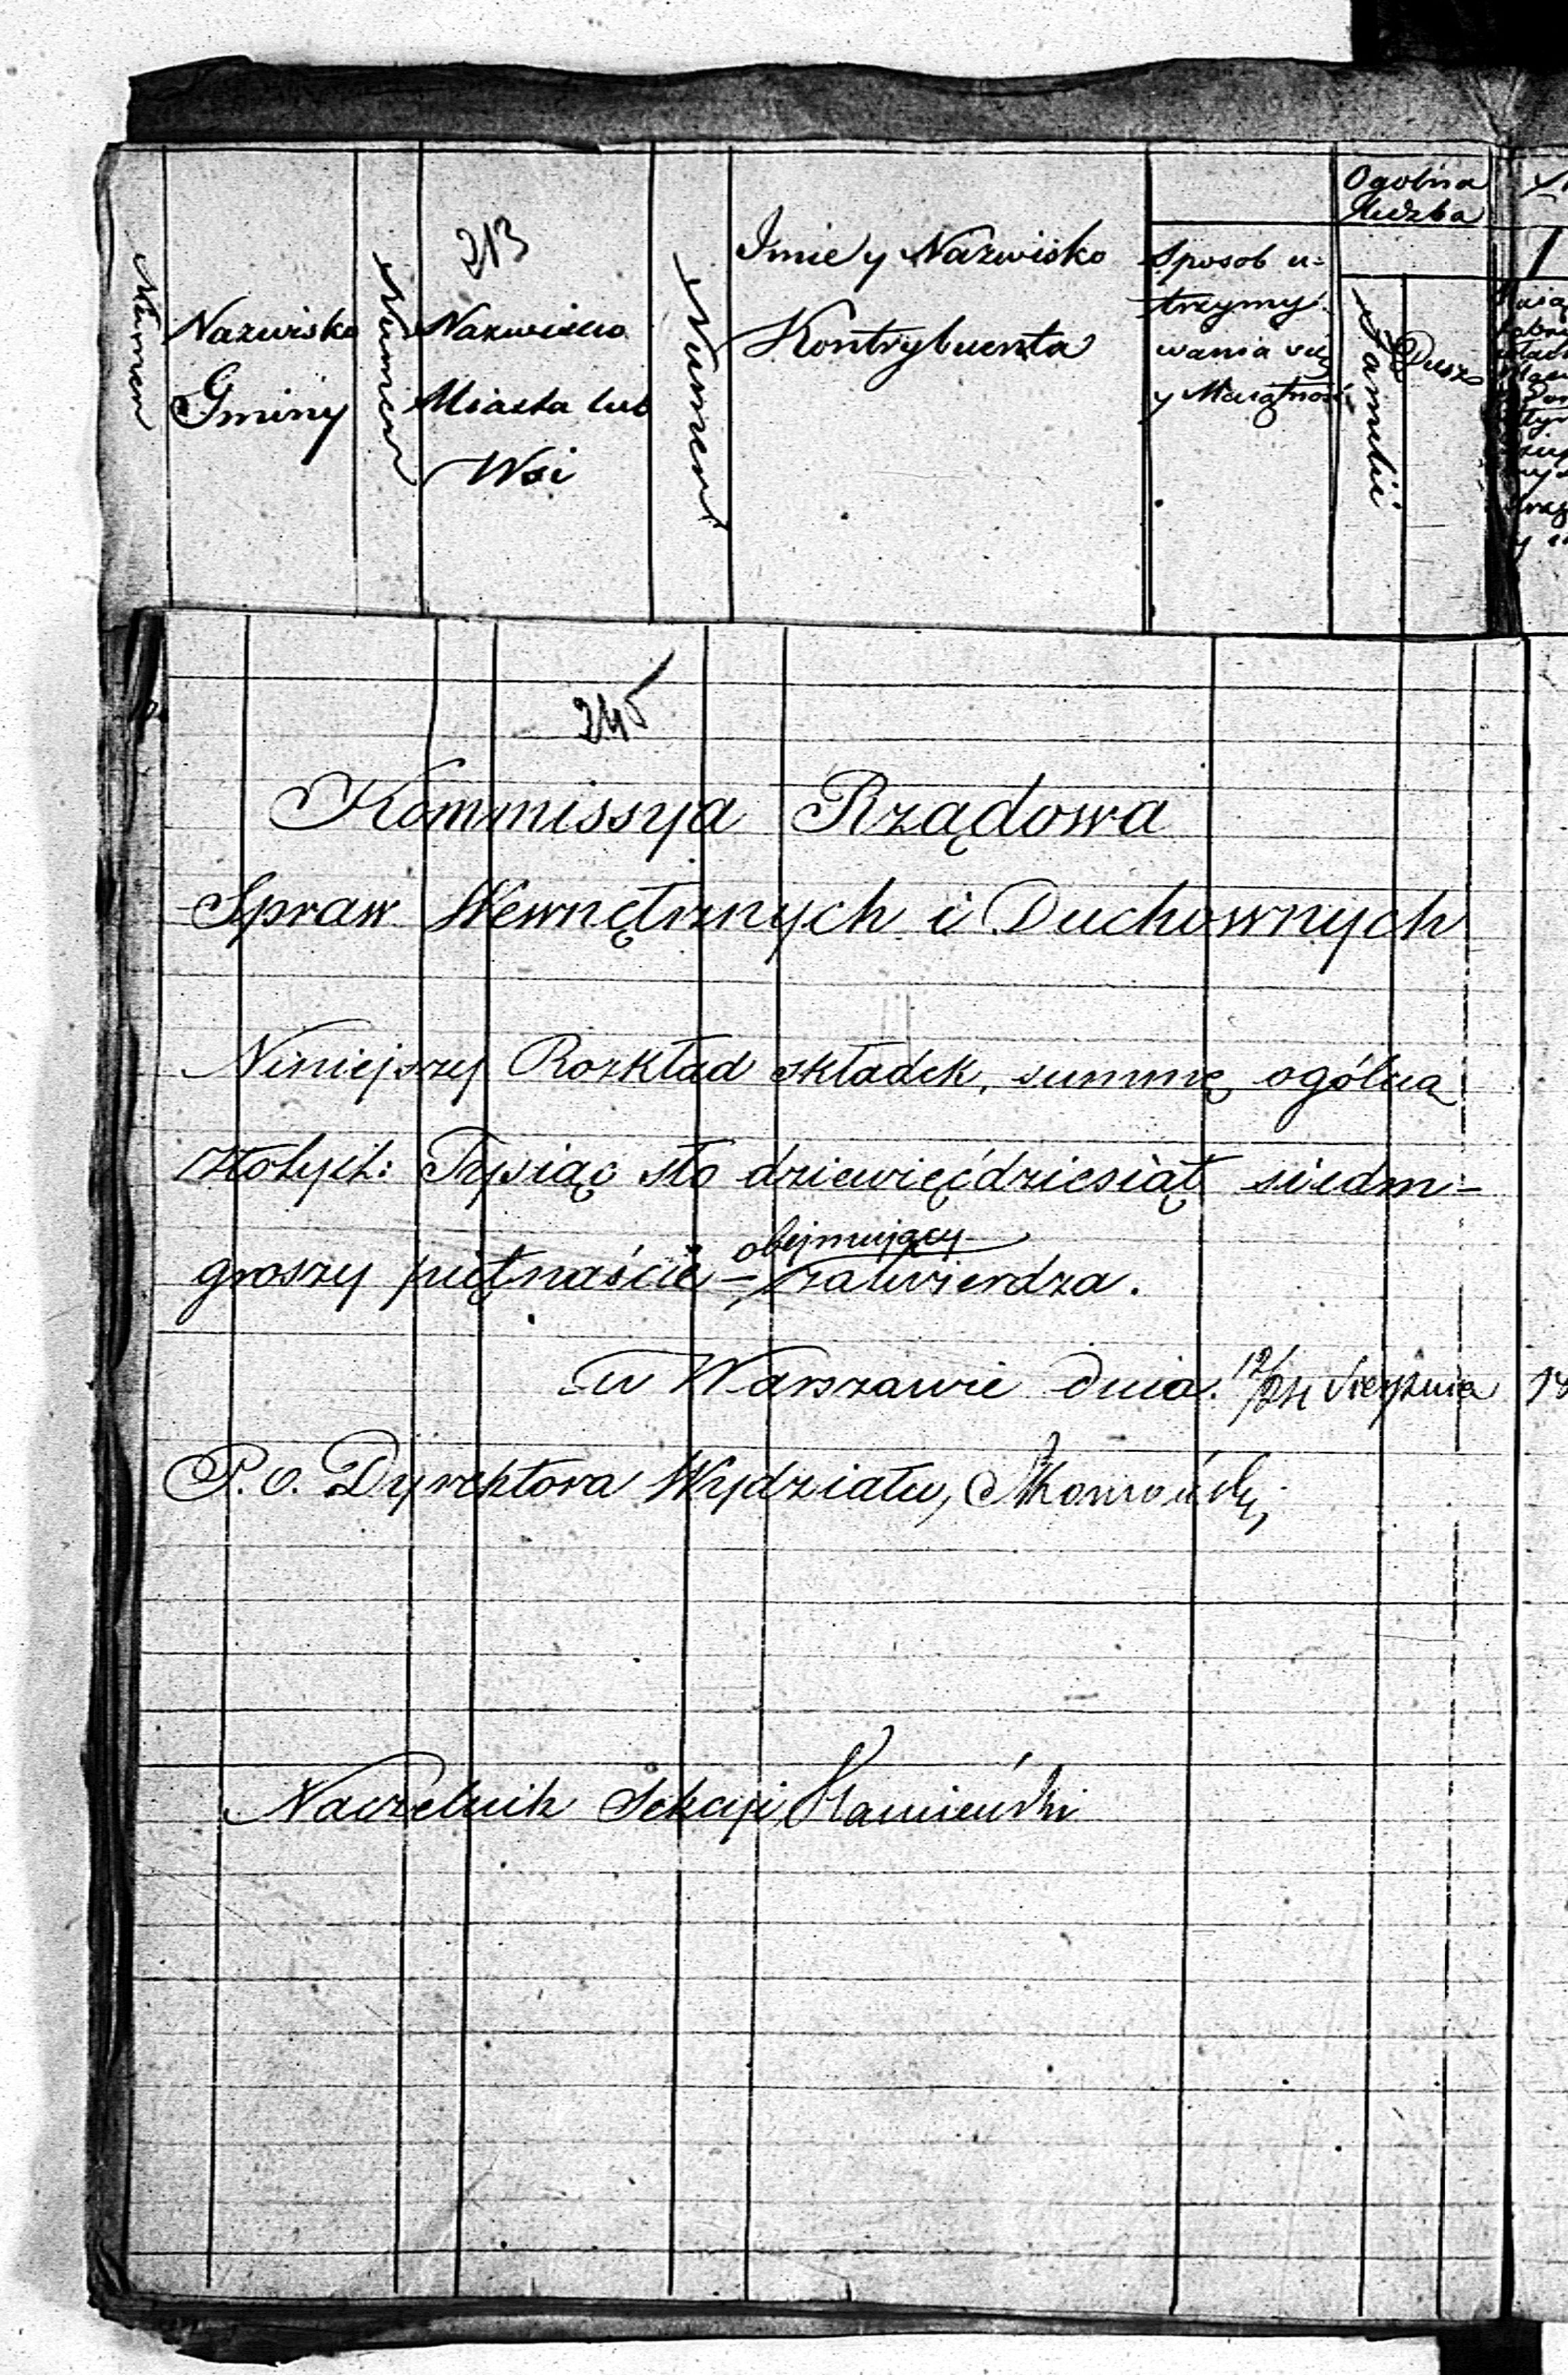 213
Numer
Nazwisko
Gminy
Numer
Nazwisko
Miasta lub
Wsi
Numer
Imie y Nazwisko
Kontrybuenta
Sposob u-
trzymy
wania się
y Maiątność
Ogolna
liczba
Familii
Dusz
245
Kommissya Rządowa
Spraw Wewnętrznych i Duchownych
Niniejszy Rozkład składek, summę ogólną
złotych: Tysiąc sto dziewięćdziesiąt siedm-
groszy piętnaście = obejmujący zatwierdza.
w Warszawie dnia 12/24 Sierpnia
P. o. Dyrektora Wydziału,
Naczelnik Sekcyi Kamieński